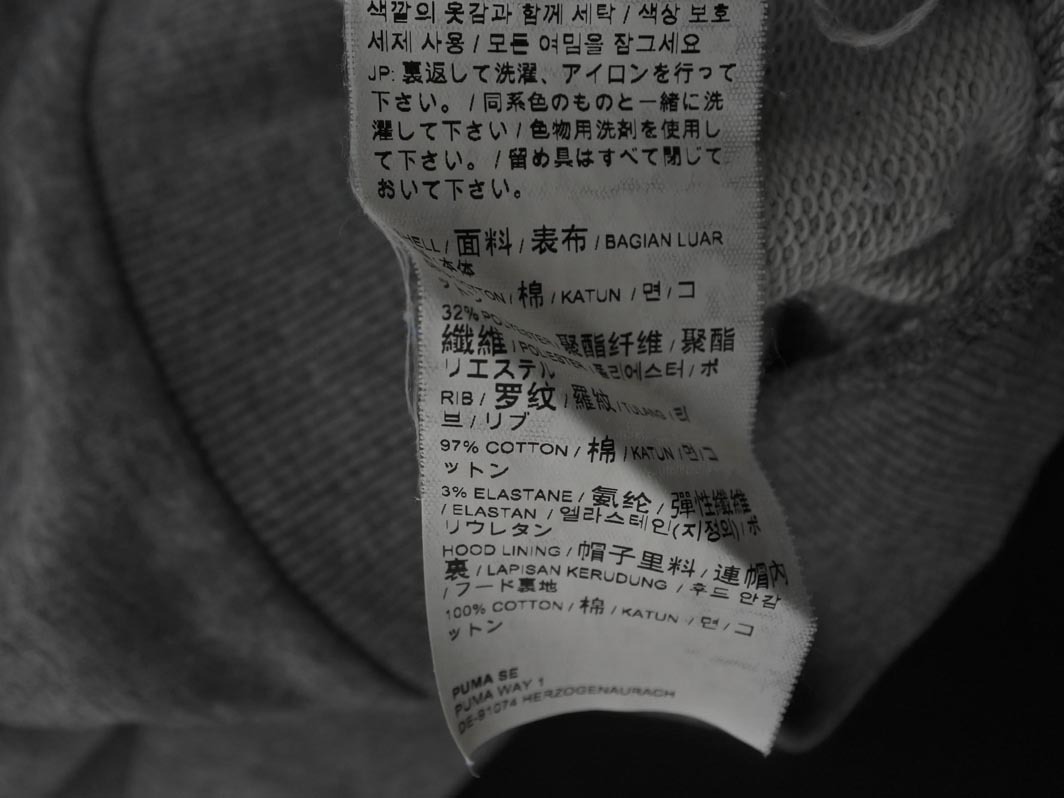 색깔의 옷감과 함께 세탁 / 색상 보호
세제 사용 / 모든 여밈을 잠그세요
JP: 裏返して洗濯、アイロンを行って
下さい。 / 同系色のものと一緒に洗
濯して下さい / 色物用洗剤を使用し
て下さい。 / 留め具はすべて閉じて
おいて下さい。
/ 面料 / 表布 / BAGIAN LUAR
本体
/ 棉 / KATUN / 면 / コ
32% POLYESTER
纖維 / POLIESTER / 폴리에스터 / 聚酯纤维 / 聚酯
リエステル / ポ
RIB / 罗纹 / 羅紋 / TULANG / 린
브 / リブ
97% COTTON / 棉 / KATUN / 면 / コ
ットン
3% ELASTANE / 氨纶 / 彈性纖維
/ ELASTAN / 엘라스테인(지정외) / ポ
リウレタン
HOOD LINING / 帽子里料 / 連帽內
裏 / LAPISAN KERUDUNG / 후드 안감
/ フード裏地
100% COTTON / 棉 / KATUN / 면 / コ
ットン
PUMA SE
PUMA WAY 1
DE-91074 HERZOGENAURACH